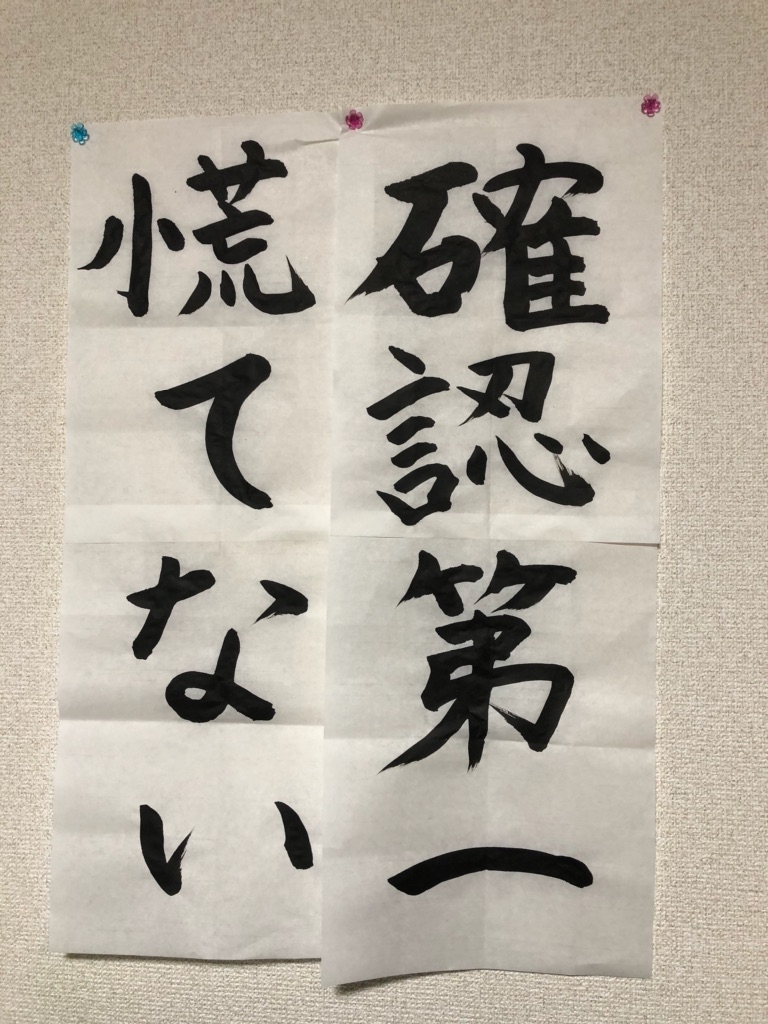 確認第一
慌てない